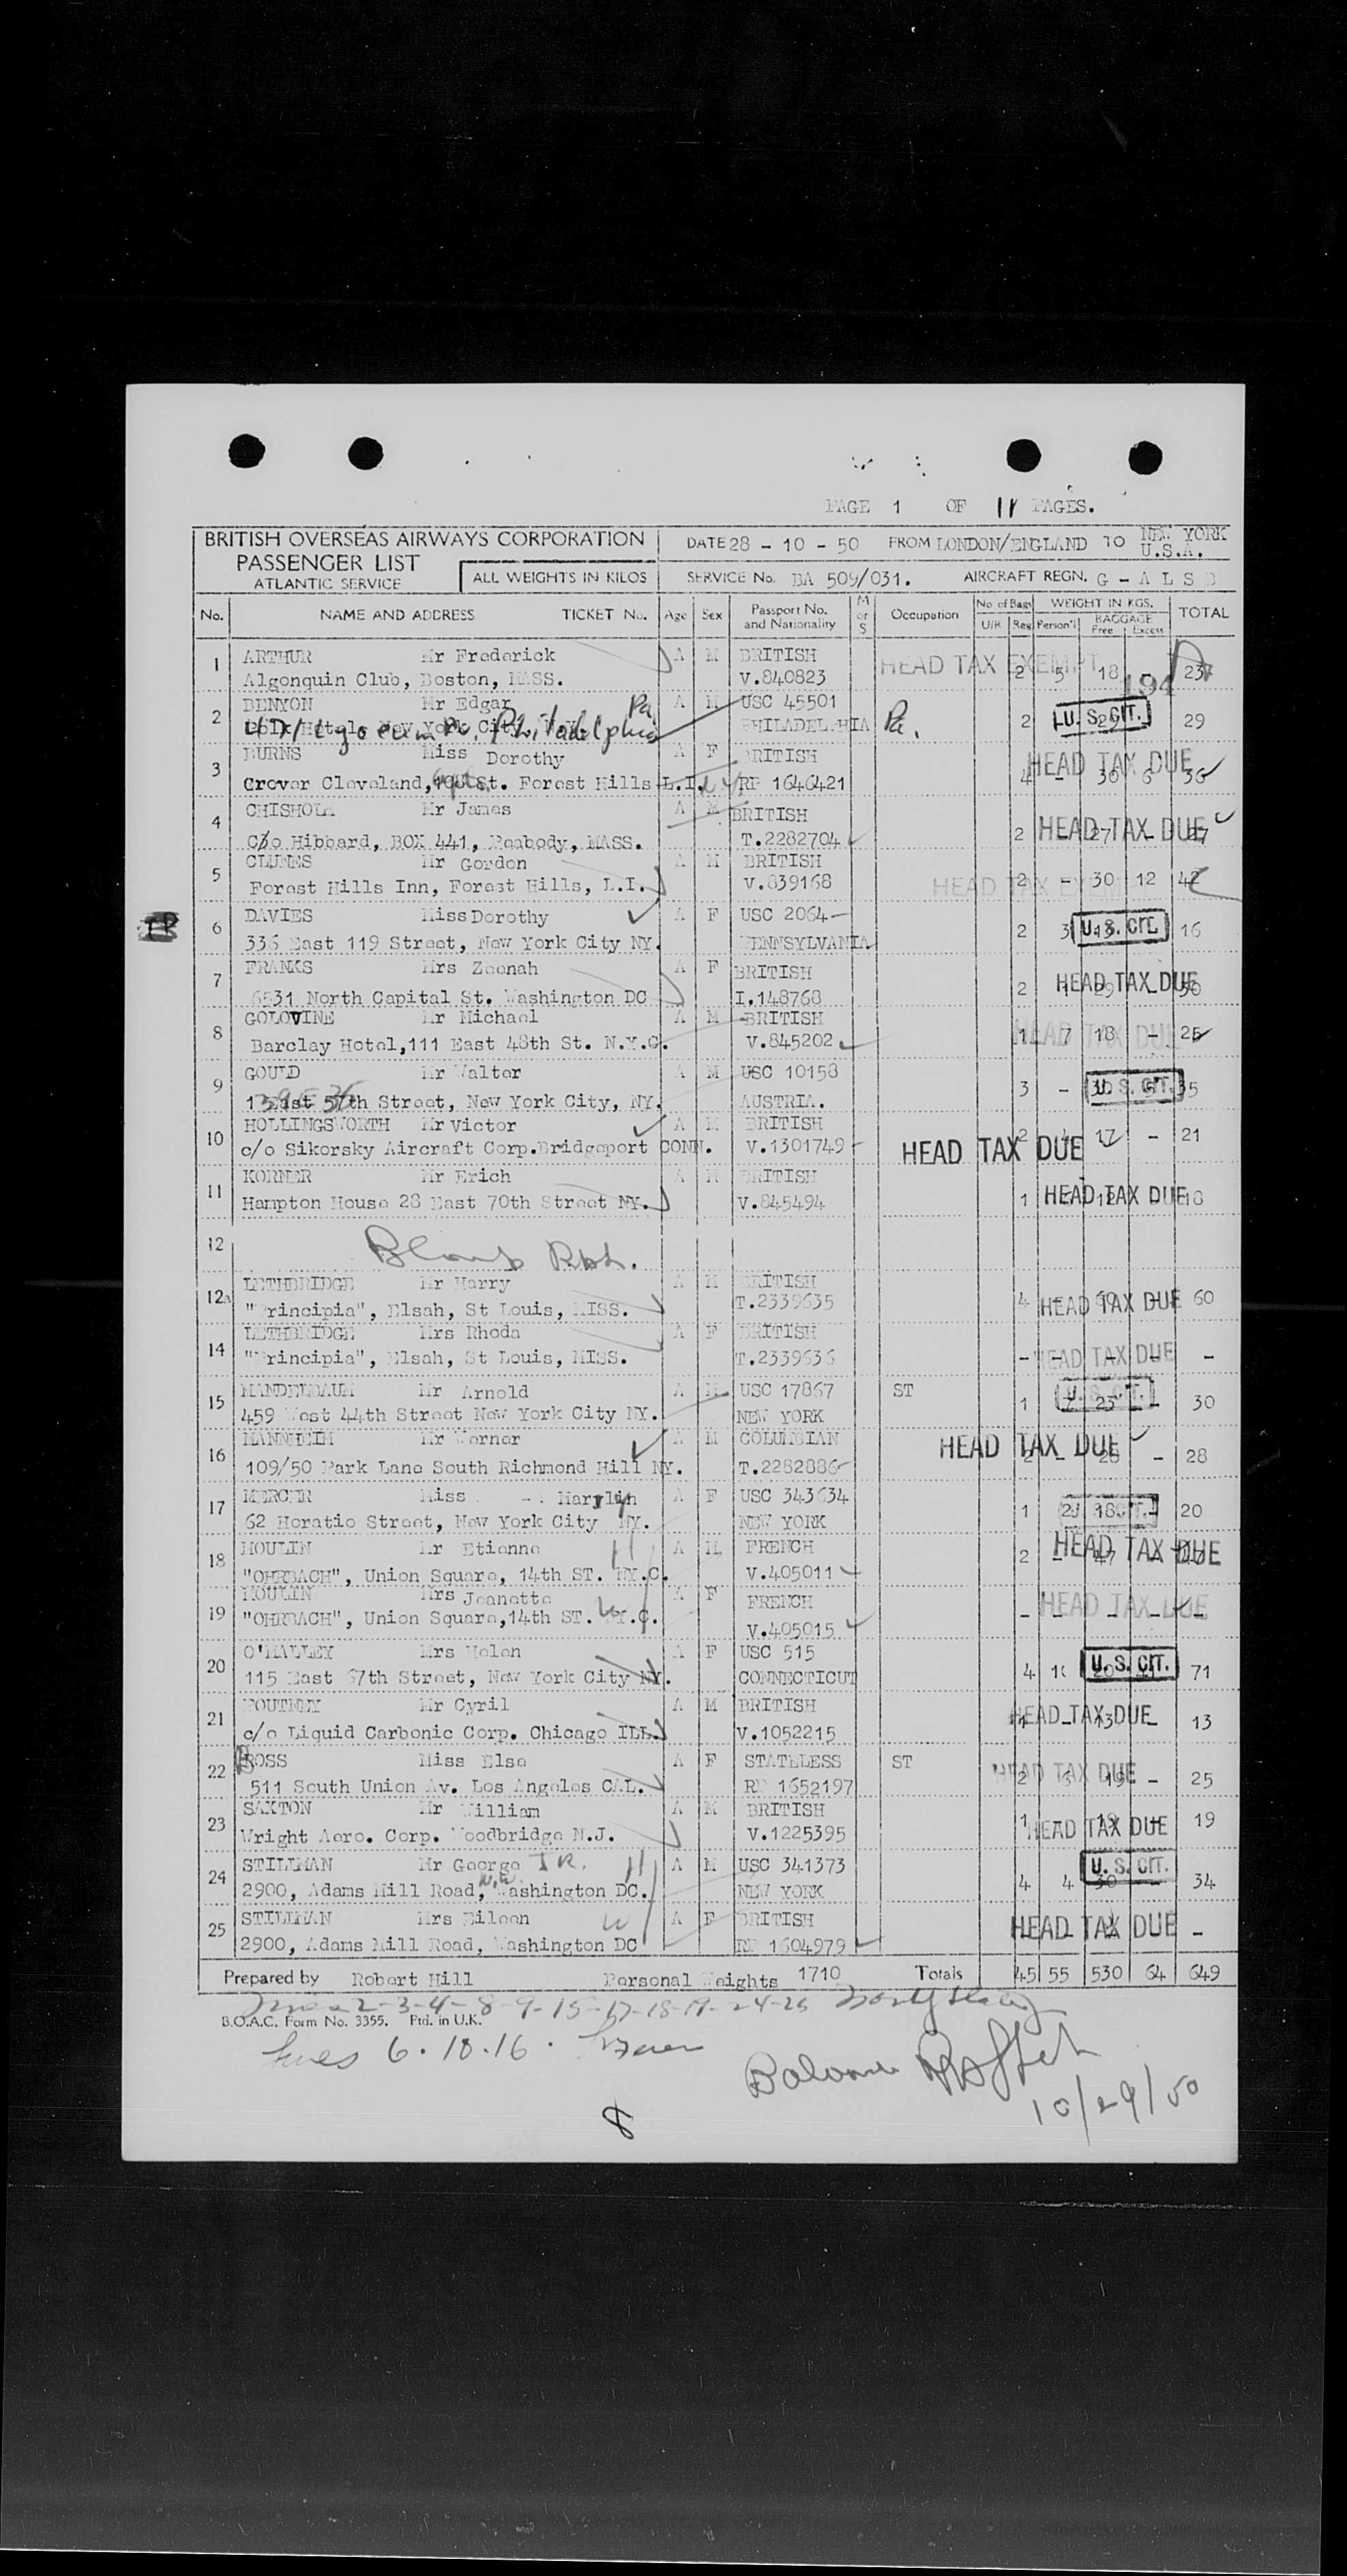 PAGE 1 OF 11 PAGES.
BRITISH OVERSEAS AIRWAYS CORPORATION
PASSENGER LIST
ATLANTIC SERVICE
ALL WEIGHTS IN KILOS
DATE 28 - 10 - 50 FROM LONDON/ENGLAND TO NEW YORK U.S.A.
SERVICE No. BA 509/031. AIRCRAFT REGN. G - A L S
No. NAME AND ADDRESS TICKET No. Age Sex Passport No. and Nationality M or S Occupation No of Bags U/R Reg WEIGHT IN KGS. Person'l BAGGAGE Free Excess TOTAL
1 ARTHUR Mr Frederick A M BRITISH HEAD TAX EXEMPT 2 5 18 23
Algonquin Club, Boston, MASS. V.840823
2 BENYON Mr Edgar A M USC 45501 Pa. 2 U.S. CIT. 29
Philadelphia Pa PHILADELPHIA
3 BURNS Miss Dorothy A F BRITISH HEAD TAX DUE
Grover Cleveland, St. Forest Hills L.I. RP 1646421 4 - 30 6 36
4 CHISHOLM Mr James A M BRITISH
C/o Hibbard, BOX 441, Peabody, MASS. T.2282704 2 HEAD TAX DUE 27 - 27
5 Mr Gordon A M BRITISH
Forest Hills Inn, Forest Hills, L.I. V.839168 HEAD TAX EXEMPT 2 - 30 12 42
6 DAVIES Miss Dorothy A F USC 2064
336 East 119 Street, New York City NY. PENNSYLVANIA 2 3 U.S. CIT. 16
7 FRANKS Mrs Zeenah A F BRITISH
6531 North Capital St. Washington DC I.148768 2 1 HEAD TAX DUE 29 - 30
8 GOLOVINE Mr Michael A M BRITISH
Barclay Hotel,111 East 48th St. N.Y.C. V.845202 1 7 HEAD TAX DUE 18 - 25
9 GOULD Mr Walter A M USC 10158
East th Street, New York City, NY. AUSTRIA. 3 - 30 U.S. CIT. 35
10 HOLLINGSWORTH Mr Victor A M BRITISH
c/o Sikorsky Aircraft Corp.Bridgeport CONN. V.1301749 HEAD TAX DUE 2 17 - 21
11 KORNER Mr Erich A M BRITISH
Hampton House 28 East 70th Street NY. V.845494 1 HEAD TAX DUE 18
12 Blank
12a LETHBRIDGE Mr Harry A M BRITISH
"Principia", Elsah, St Louis, MISS. T.2339635 4 HEAD TAX DUE 60
14 LETHBRIDGE Mrs Rhoda A F BRITISH
"Principia", Elsah, St Louis, MISS. T.2339636 - HEAD TAX DUE -
15 MANDELBAUM Mr Arnold A M USC 17867 ST U.S. CIT.
459 West 44th Street New York City NY. NEW YORK 1 7 23 - 30
16 MANNHEIM Mr Werner A M COLUMBIAN HEAD TAX DUE
109/50 Park Lane South Richmond Hill NY. T.2282886 2 - 28 - 28
17 MERCER Miss Marylyn A F USC 343634
62 Horatio Street, New York City NY. NEW YORK 1 2 18 U.S. CIT. 20
18 MOULIN Mr Etienne A M FRENCH HEAD TAX DUE
"OHRBACH", Union Square, 14th ST. NY.C. V.405011 2
19 MOULIN Mrs Jeanette A F FRENCH
"OHRBACH", Union Square,14th ST. NY.C. V.405015 - - HEAD TAX DUE -
20 O'MALLEY Mrs Helen A F USC 515
115 East 67th Street, New York City NY. CONNECTICUT 4 U.S. CIT. 71
21 POUTNEY Mr Cyril A M BRITISH
c/o Liquid Carbonic Corp. Chicago ILL. V.1052215 1 HEAD TAX DUE 13 - 13
22 ROSS Miss Else A F STATELESS ST
511 South Union Av. Los Angeles CAL. RP 1652197 2 6 HEAD TAX DUE 19 - 25
23 SAXTON Mr William A M BRITISH
Wright Aero. Corp. Woodbridge N.J. V.1225395 1 HEAD TAX DUE 19
24 STILLMAN Mr George JR. A M USC 341373 U.S. CIT.
2900, Adams Mill Road, N.W. Washington DC. NEW YORK 4 4 30 - 34
25 STILLMAN Mrs Eileen A F BRITISH
2900, Adams Mill Road, Washington DC RP 1604979 HEAD TAX DUE -
Prepared by Robert Hill Personal Weights 1710 Totals 45 55 530 64 649
2-3-4-8-9-15-17-18-19-24-25
B.O.A.C. Form No. 3355. Ptd. in U.K.
6.10.16.
Balance
10/29/50
8